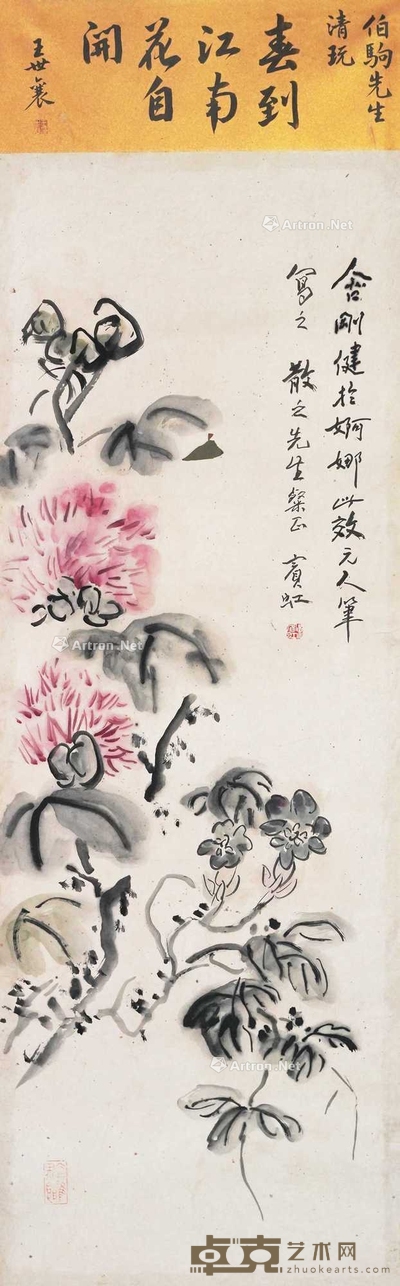 伯駒先生
清玩
春到
江南
花自
開
王世襄
含剛健於婀娜此效元人筆
寫之 散之先生粲正 賓虹
Artron.Net
Artron.Net
Artron.Net
Artron.Net
卓克艺术网
zhuokearts.com